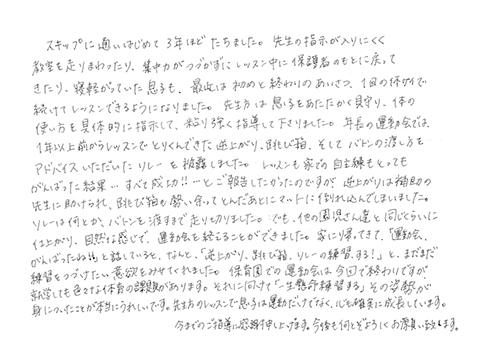 スキップに通いはじめて3年ほどたちました。先生の指示が入りにくく
教室を走りまわったり、集中力がつづかずにレッスン中に保護者のもとに戻って
きたり、寝転がっていた息子も、最近は初めと終わりのあいさつ、1回の休けいで
続けてレッスンできるようになりました。先生方は息子をあたたかく見守り、体の
使い方を具体的に指示して、粘り強く指導して下さりました。年長の運動会では、
1年以上前からレッスンでとりくんできた逆上がり、跳び箱、そしてバトンの渡し方を
アドバイスいただいたリレーを披露しました。レッスンも家での自主練もとっても
がんばった結果…すべて成功!!…とご報告したかったのですが、逆上がりは補助の
先生に助けられ、跳び箱も勢い余ってとんだあとにマットに倒れ込んでしまいました。
リレーは何とか、バトンを渡すまで走り切りました。でも、他の園児さん達と同じくらいに
仕上がり、自然な感じで、運動会を終えることができました。家に帰ってきて、「運動会、
がんばったね!!」と話していると、なんと、「逆上がり、跳び箱、リレーの練習する!」と、まだまだ
練習をつづけたい意欲をみせてくれました。保育園での運動会は今回で終わりですが、
就学しても色々な体育の課題があります。それに向けて「一生懸命練習する」その姿勢が
身についたことが本当にうれしいです。先生方のレッスンで息子は運動だけでなく、心も確実に成長しています。
今までのご指導に感謝申し上げます。今後も何とぞよろしくお願い致します。